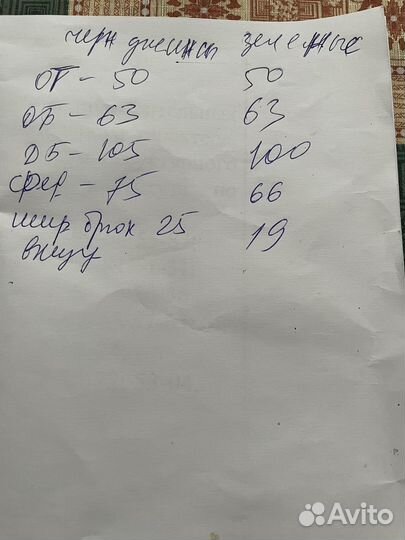 черн джинсы зеленые
ОТ - 50 50
ОБ - 63 63
ДБ - 105 100
- 75 66
шир брюк 25 19
внизу
Avito